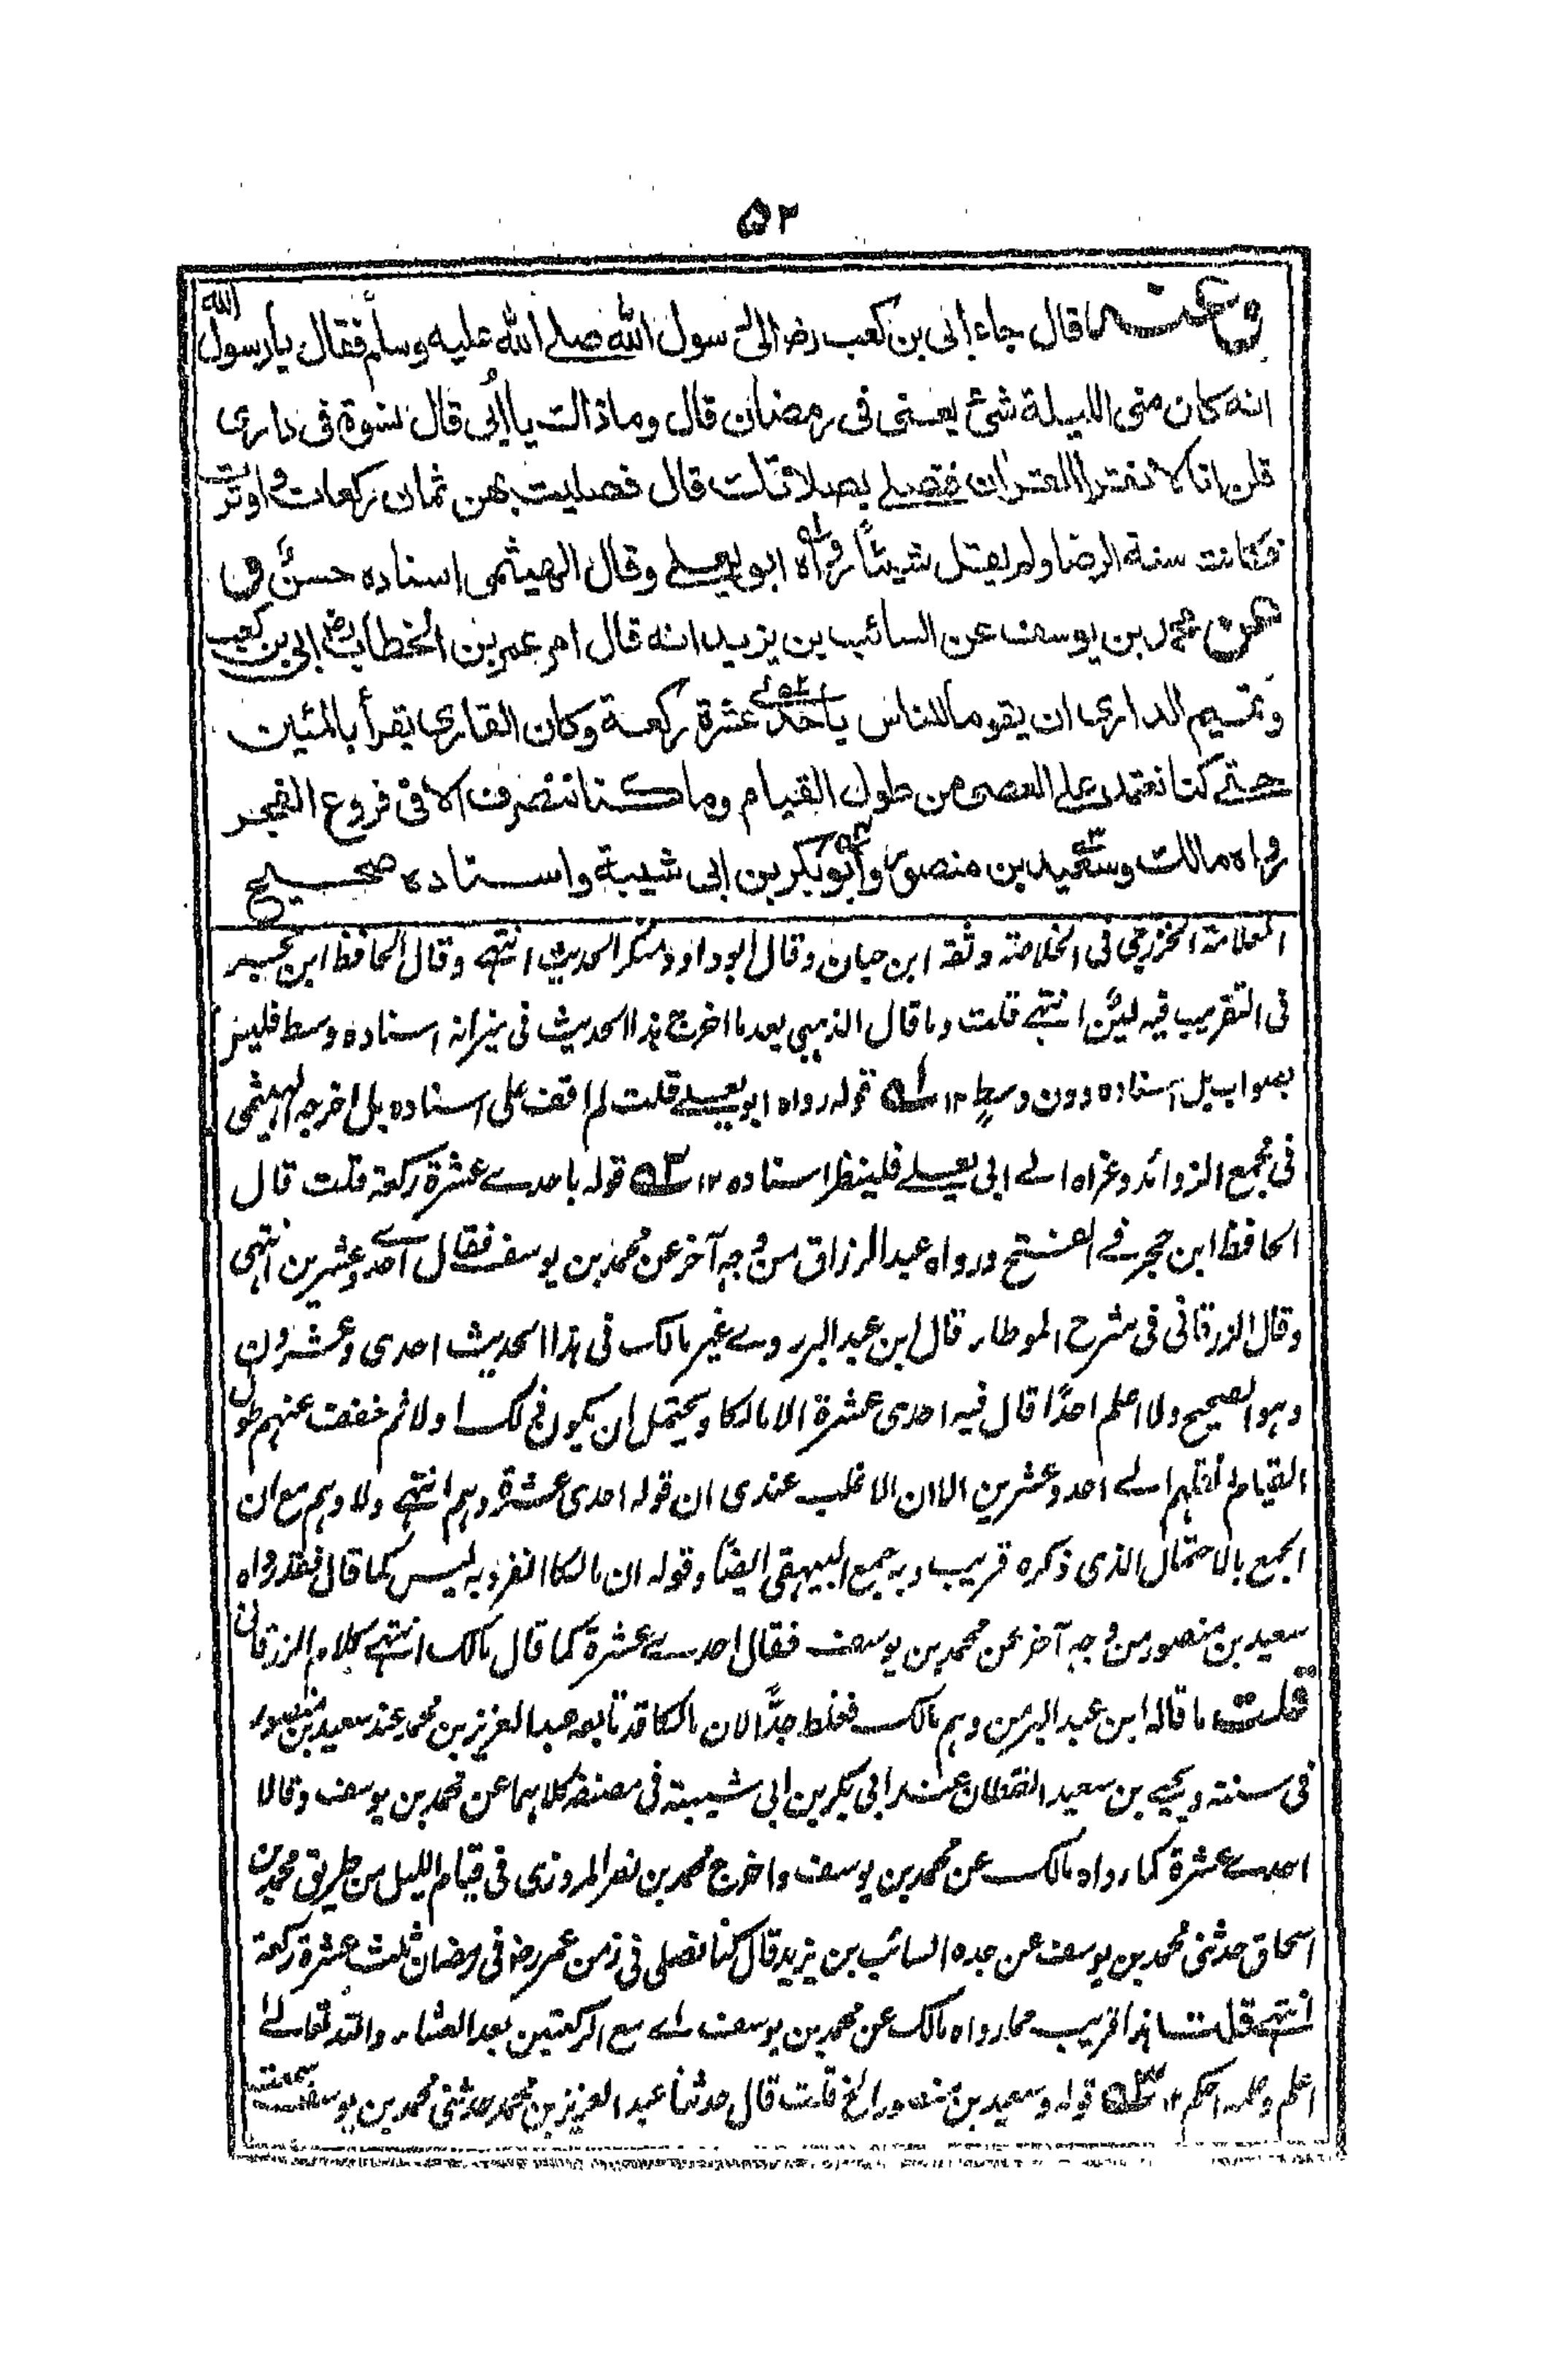 ۵۲
وعنه قال جاء ابی بن کعب رض الی رسول الله صلی الله علیه وسلم فقال یا رسول الله
انه کان منی اللیلة شئ یعنی فی رمضان قال وما ذاک یا ابی قال نسوة فی داری
قلن انا لا نقرأ القران فنصلی بصلاتک قال فصلیت بهن ثمان رکعات واوترت
فکانت سنة الرضا ولم یقل شیئاً رواه ابو یعلی وقال الهیثمی اسناده حسن و
عن محمد بن یوسف عن السائب بن یزید انه قال امر عمر بن الخطاب رض ابی بن کعب
وتمیم الداری ان یقوما للناس باحدی عشرة رکعة وکان القاری یقرأ بالمئین
حتی کنا نعتمد علی العصی من طول القیام وما کنا ننصرف الا فی فروع الفجر
رواه مالک وسعید بن منصور وابو بکر بن ابی شیبة واسناده صحیح
العلامة الخزرجی فی الخلاصة وثقه ابن حبان وقال ابو داود منکر الحدیث انتهی وقال الحافظ ابن حجر
فی التقریب فیه لین انتهی قلت وما قال الذهبی بعد ما اخرج هذا الحدیث فی میزانه اسناده وسط فلیس
بصواب بل اسناده دون وسط ۱۲ ۱ه قوله رواه ابو یعلی قلت لم اقف علی اسناده بل اخرجه الهیثمی
فی مجمع الزوائد وعزاه الی ابی یعلی فلینظر اسناده ۱۲ ۲ه قوله باحدی عشرة رکعة قلت قال
الحافظ ابن حجر فی الفتح ورواه عبد الرزاق من وجه آخر عن محمد بن یوسف فقال احدی وعشرین انتهی
وقال الزرقانی فی شرح الموطا قال ابن عبد البر روی غیر مالک فی هذا الحدیث احدی وعشرون
وهو الصحیح ولا اعلم احدًا قال فیه احدی عشرة الا مالکا ویحتمل ان یکون ذلک اولا ثم خفف عنهم طول
القیام ونقلهم الی احد وعشرین الا ان الاغلب عندی ان قوله احدی عشرة وهم انتهی ولا وهم مع ان
الجمع بالاحتمال الذی ذکره قریب وبه جمع البیهقی ایضًا وقوله ان مالکا انفرد به لیس کما قال فقد رواه
سعید بن منصور من وجه آخر عن محمد بن یوسف فقال احدی عشرة کما قال مالک انتهی کلام الزرقانی
قلت ما قاله ابن عبد البر من وهم مالک فغلط جدًّا لان مالکا قد تابعه عبد العزیز بن محمد عند سعید بن منصور
فی سننه ویحیی بن سعید القطان عند ابی بکر بن ابی شیبة فی مصنفه کلاهما عن محمد بن یوسف وقالا
احدی عشرة کما رواه مالک عن محمد بن یوسف واخرج محمد بن نصر المروزی فی قیام اللیل من طریق محمد بن
اسحاق حدثنی محمد بن یوسف عن جده السائب بن یزید قال کنا نصلی فی زمن عمر رض فی رمضان ثلث عشرة رکعة
انتهی قلت هذا قریب مما رواه مالک عن محمد بن یوسف ای مع الرکعتین بعد العشاء والله تعالی
اعلم وعلمه احکم ۱۲ ۳ه قوله وسعید بن منصور الخ قلت قال حدثنا عبد العزیز بن محمد حدثنی محمد بن یوسف سمعت